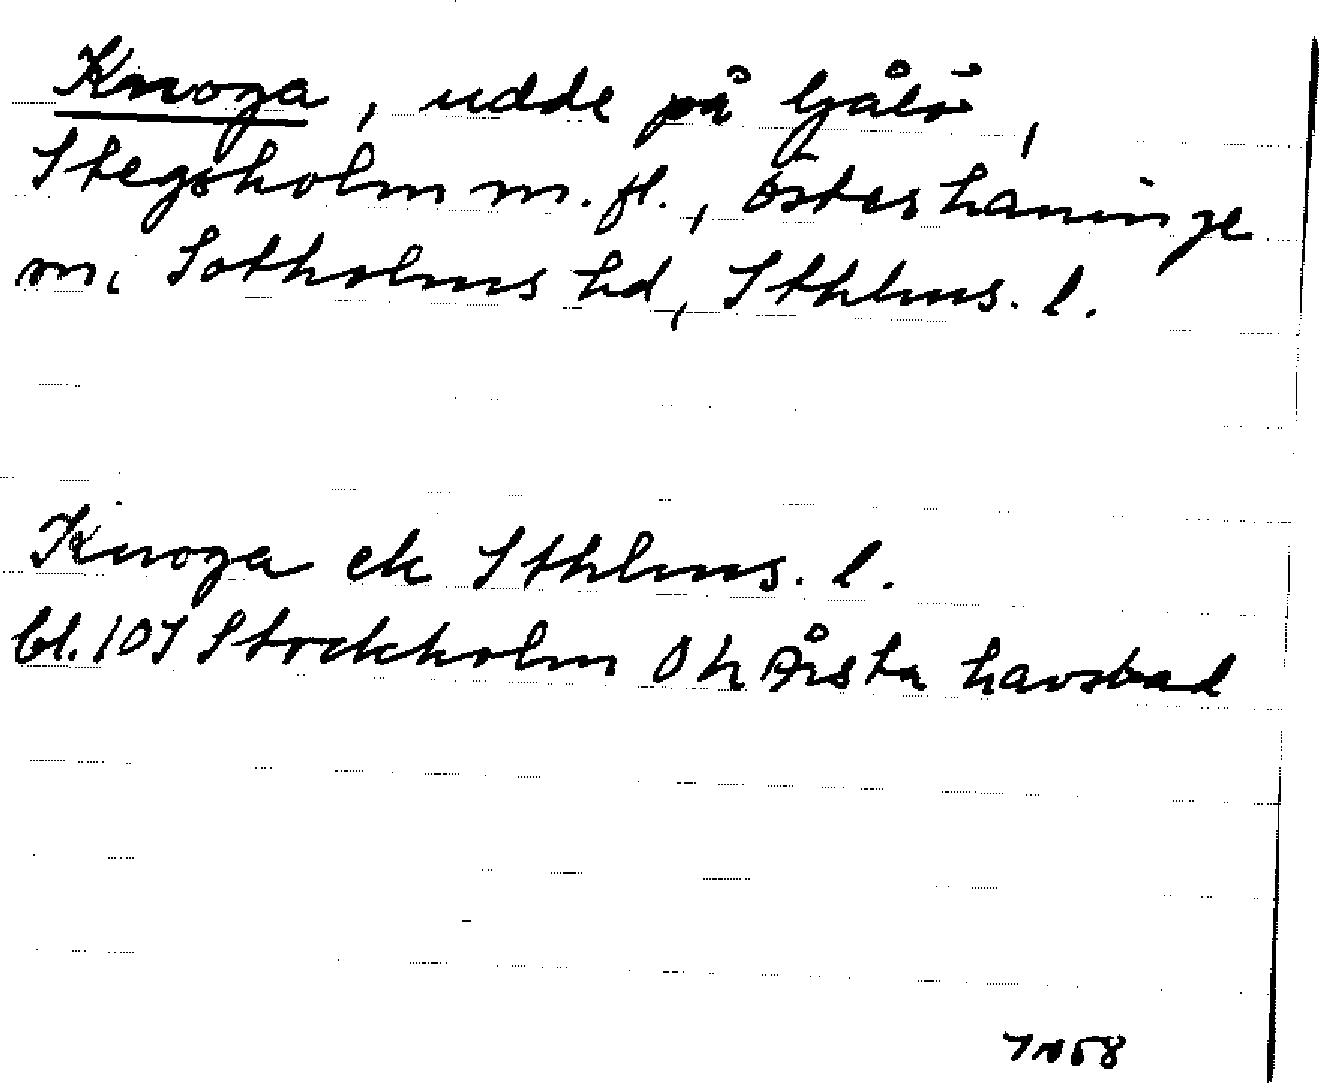 Knoga, udde på Gålö,
Stegsholm m. fl., Österhaninge
sn, Sotholms hd, Sthlms. l.
Knoga ek Sthlms. l.
bl. 107 Stockholm Öh Årsta havsbad